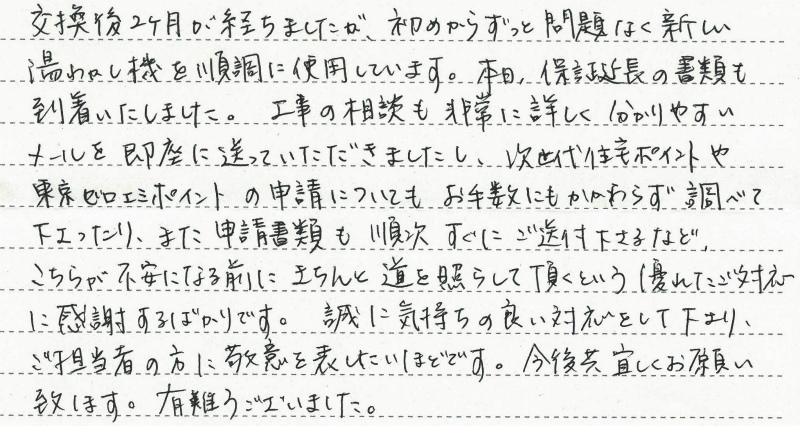 交換後2ヶ月が経ちましたが、初めからずっと問題なく新しい
湯わかし機を順調に使用しています。本日、保証延長の書類も
到着いたしました。 工事の相談も非常に詳しく分かりやすい
メールを即座に送っていただきましたし、次世代住宅ポイントや
東京ゼロエミポイントの申請についてもお手数にもかかわらず調べて
下さったり、また申請書類も順次すぐにご送付下さるなど、
こちらが不安になる前にきちんと道を照らして頂くという優れたご対応
に感謝するばかりです。 誠に気持ちの良い対応をして下さり、
ご担当者の方に敬意を表したいほどです。今後共宜しくお願い
致します。有難うございました。